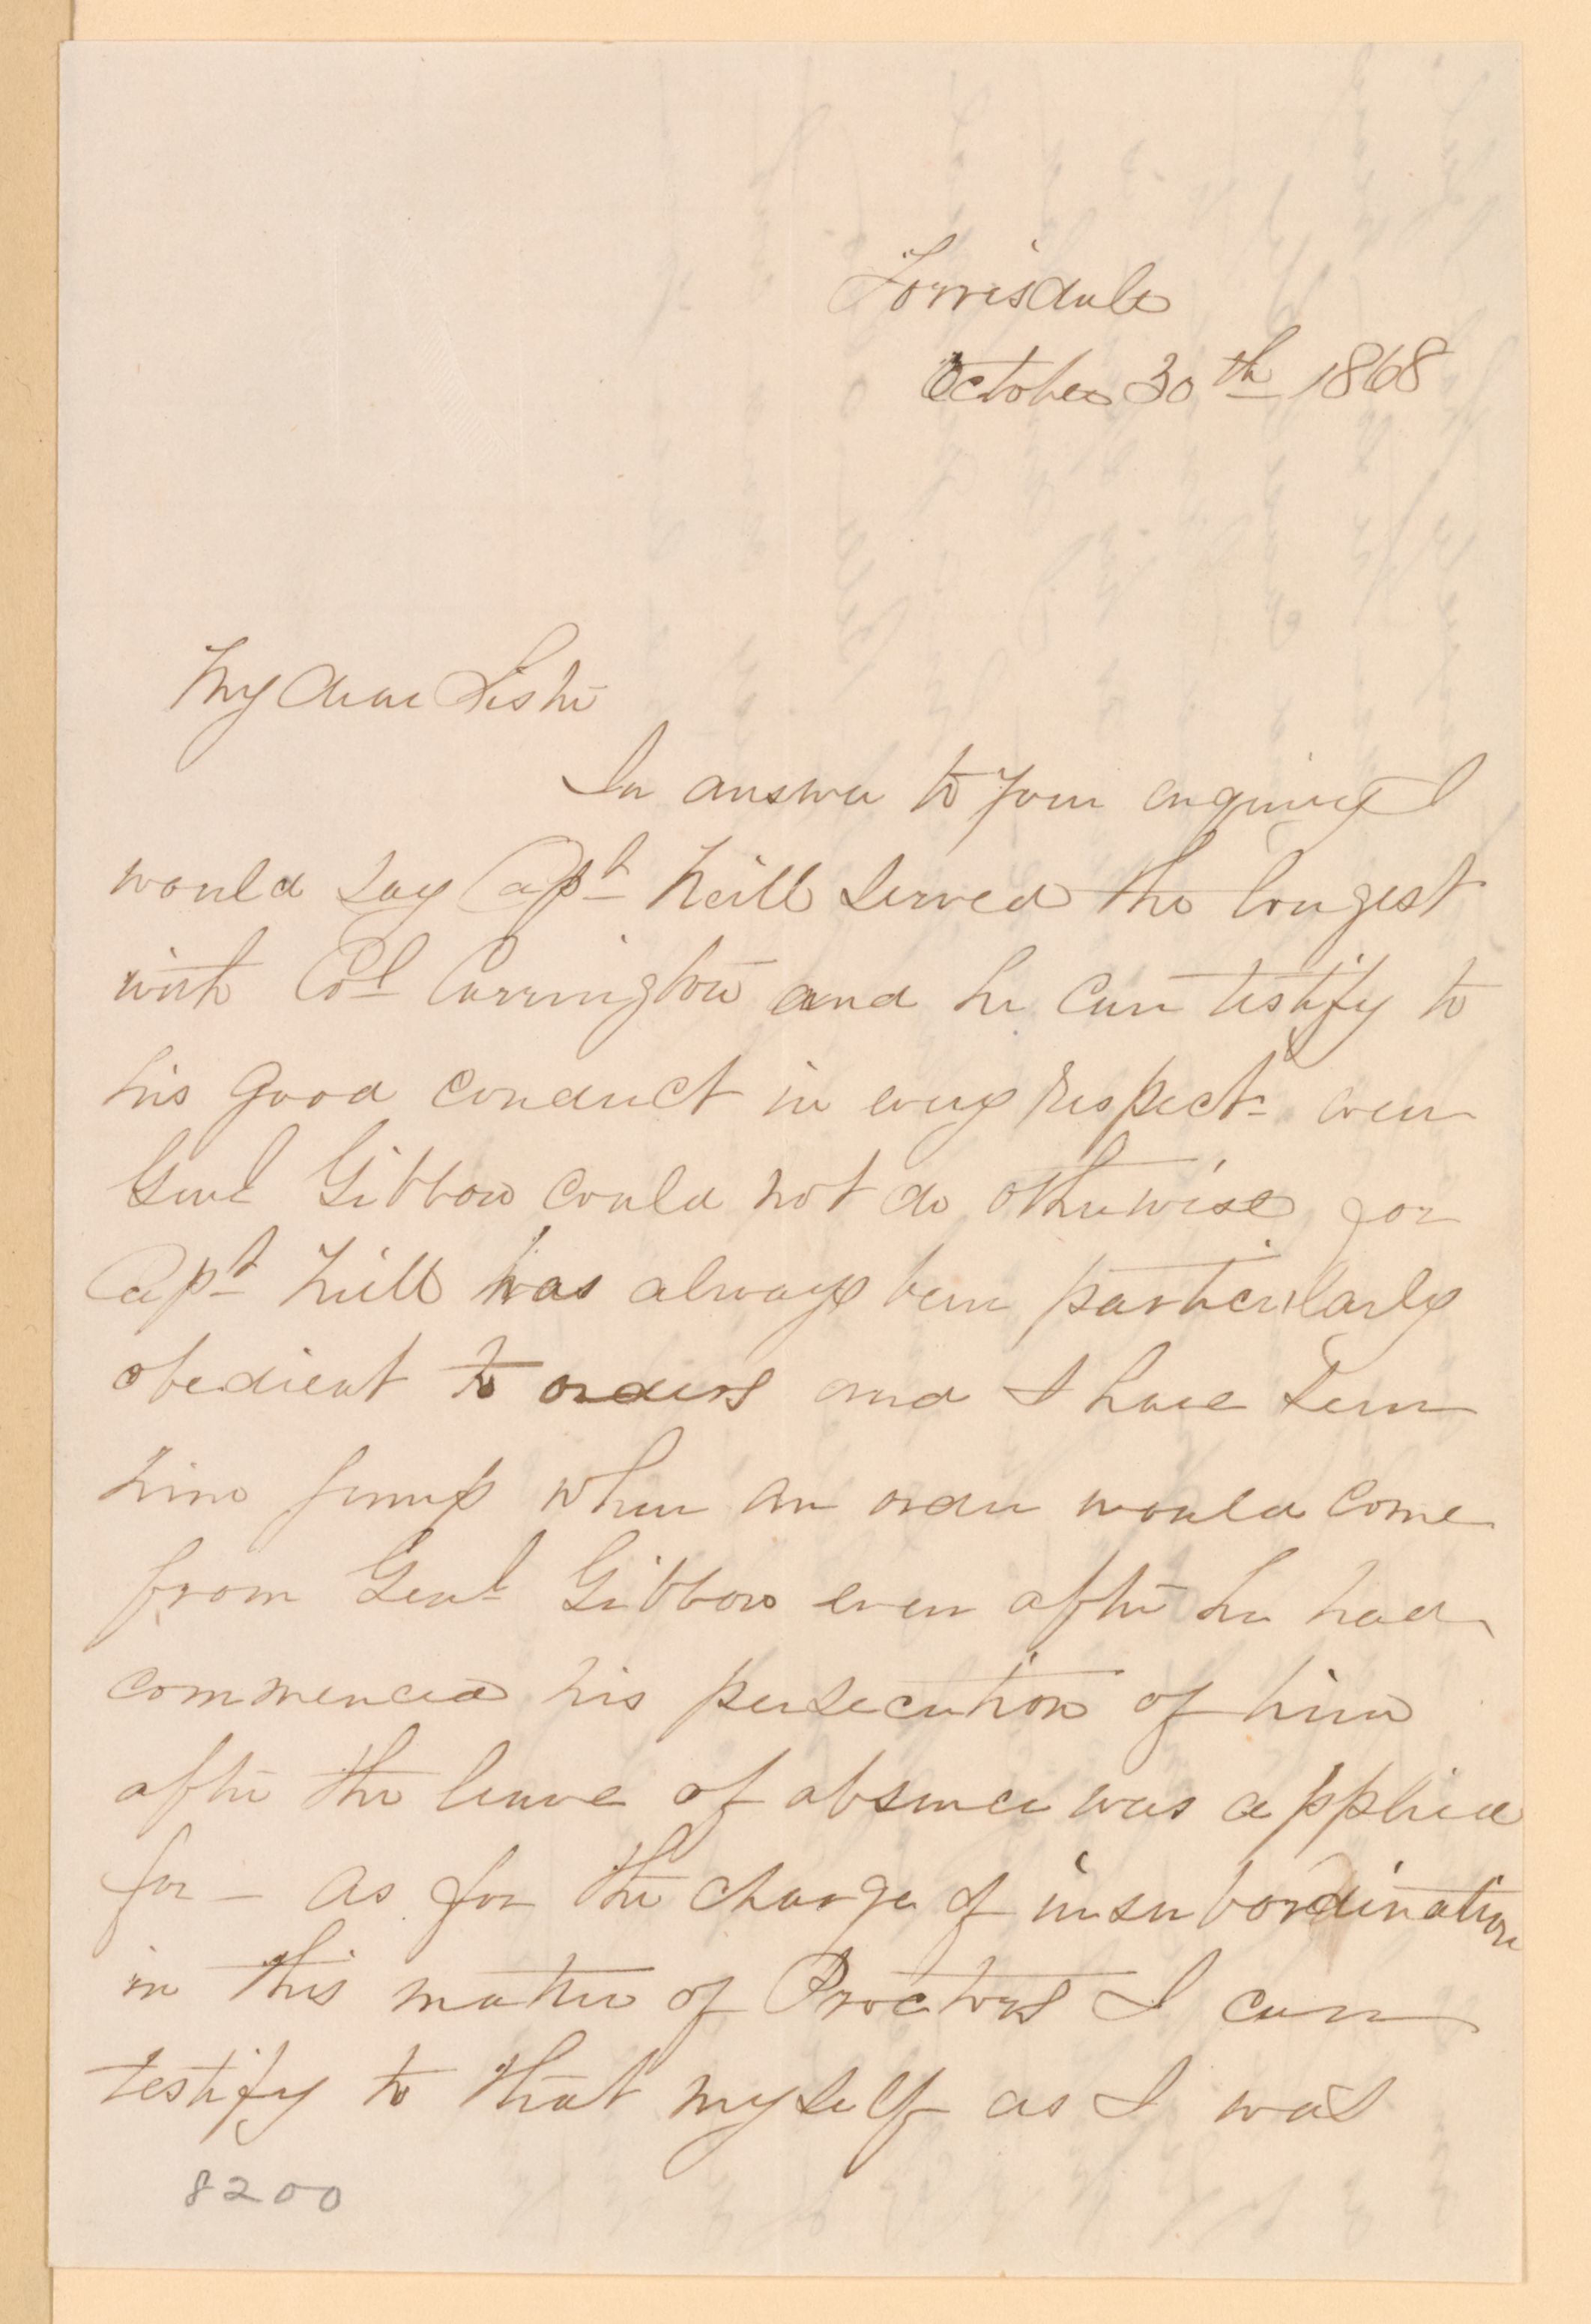 Torrisdale
October 30th 1868
My dear Sister
In answer to your enquiry I
would say Capt Neill served the longest
with Col Carrington and he can testify to
his good conduct in every respect - even
Genl Gibbon could not do otherwise for
Capt Neill has always been particularly
obedient to orders and I have seen
him jump when an order would come
from Genl Gibbon even after he had
commenced his persecution of him
after the leave of absence was applied
for - as for the charge of insubordination
in this matter of Proctors I can
testify to that myself as I was
8200